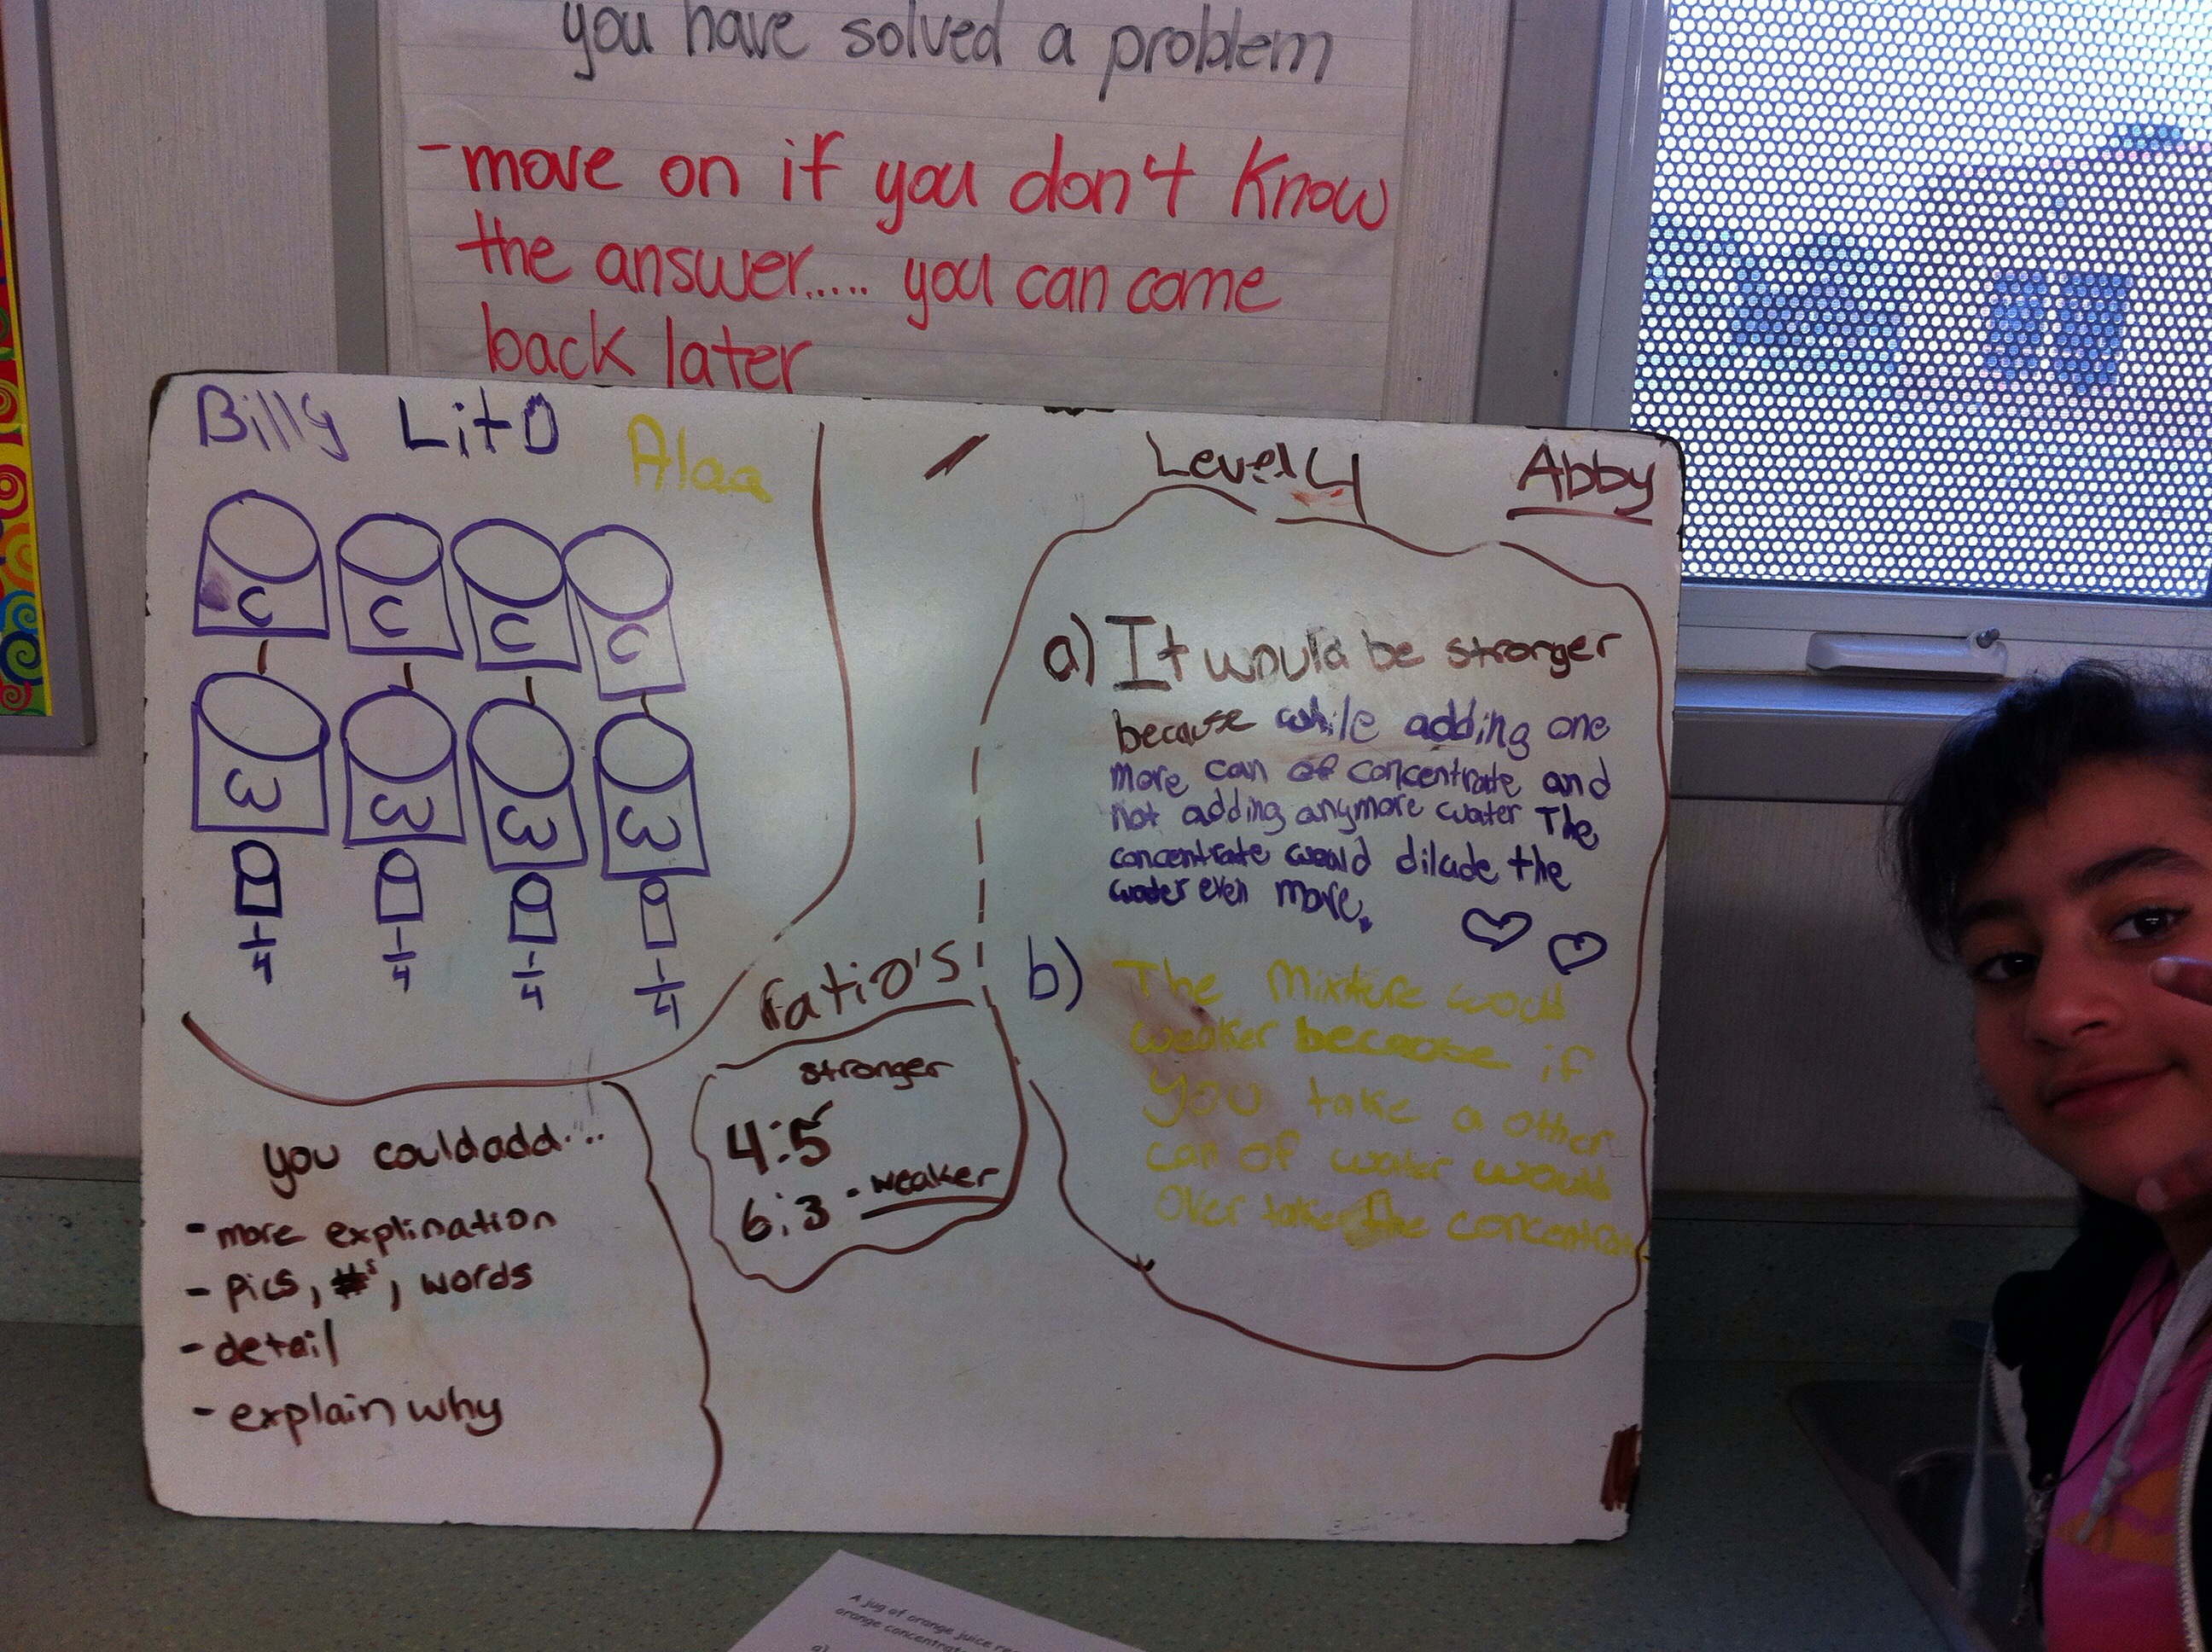 you have solved a problem
- move on if you don't know
the answer..... you can come
back later
Billy Lito Alaa
C C C C
3 3 3 3
1/4 1/4 1/4 1/4
you could add...
- more explination
- pics, #s, words
- detail
- explain why
ratio's
stronger
4:5
6:3 - weaker
Level 4 Abby
a) It would be stronger
because while adding one
more can of concentrate and
not adding anymore water The
concentrate would dilude the
water even more.
b) The Mixture would
weaker because if
you take a other
can of water would
over take the concentrate
A jug of orange juice
orange concentrate
a)